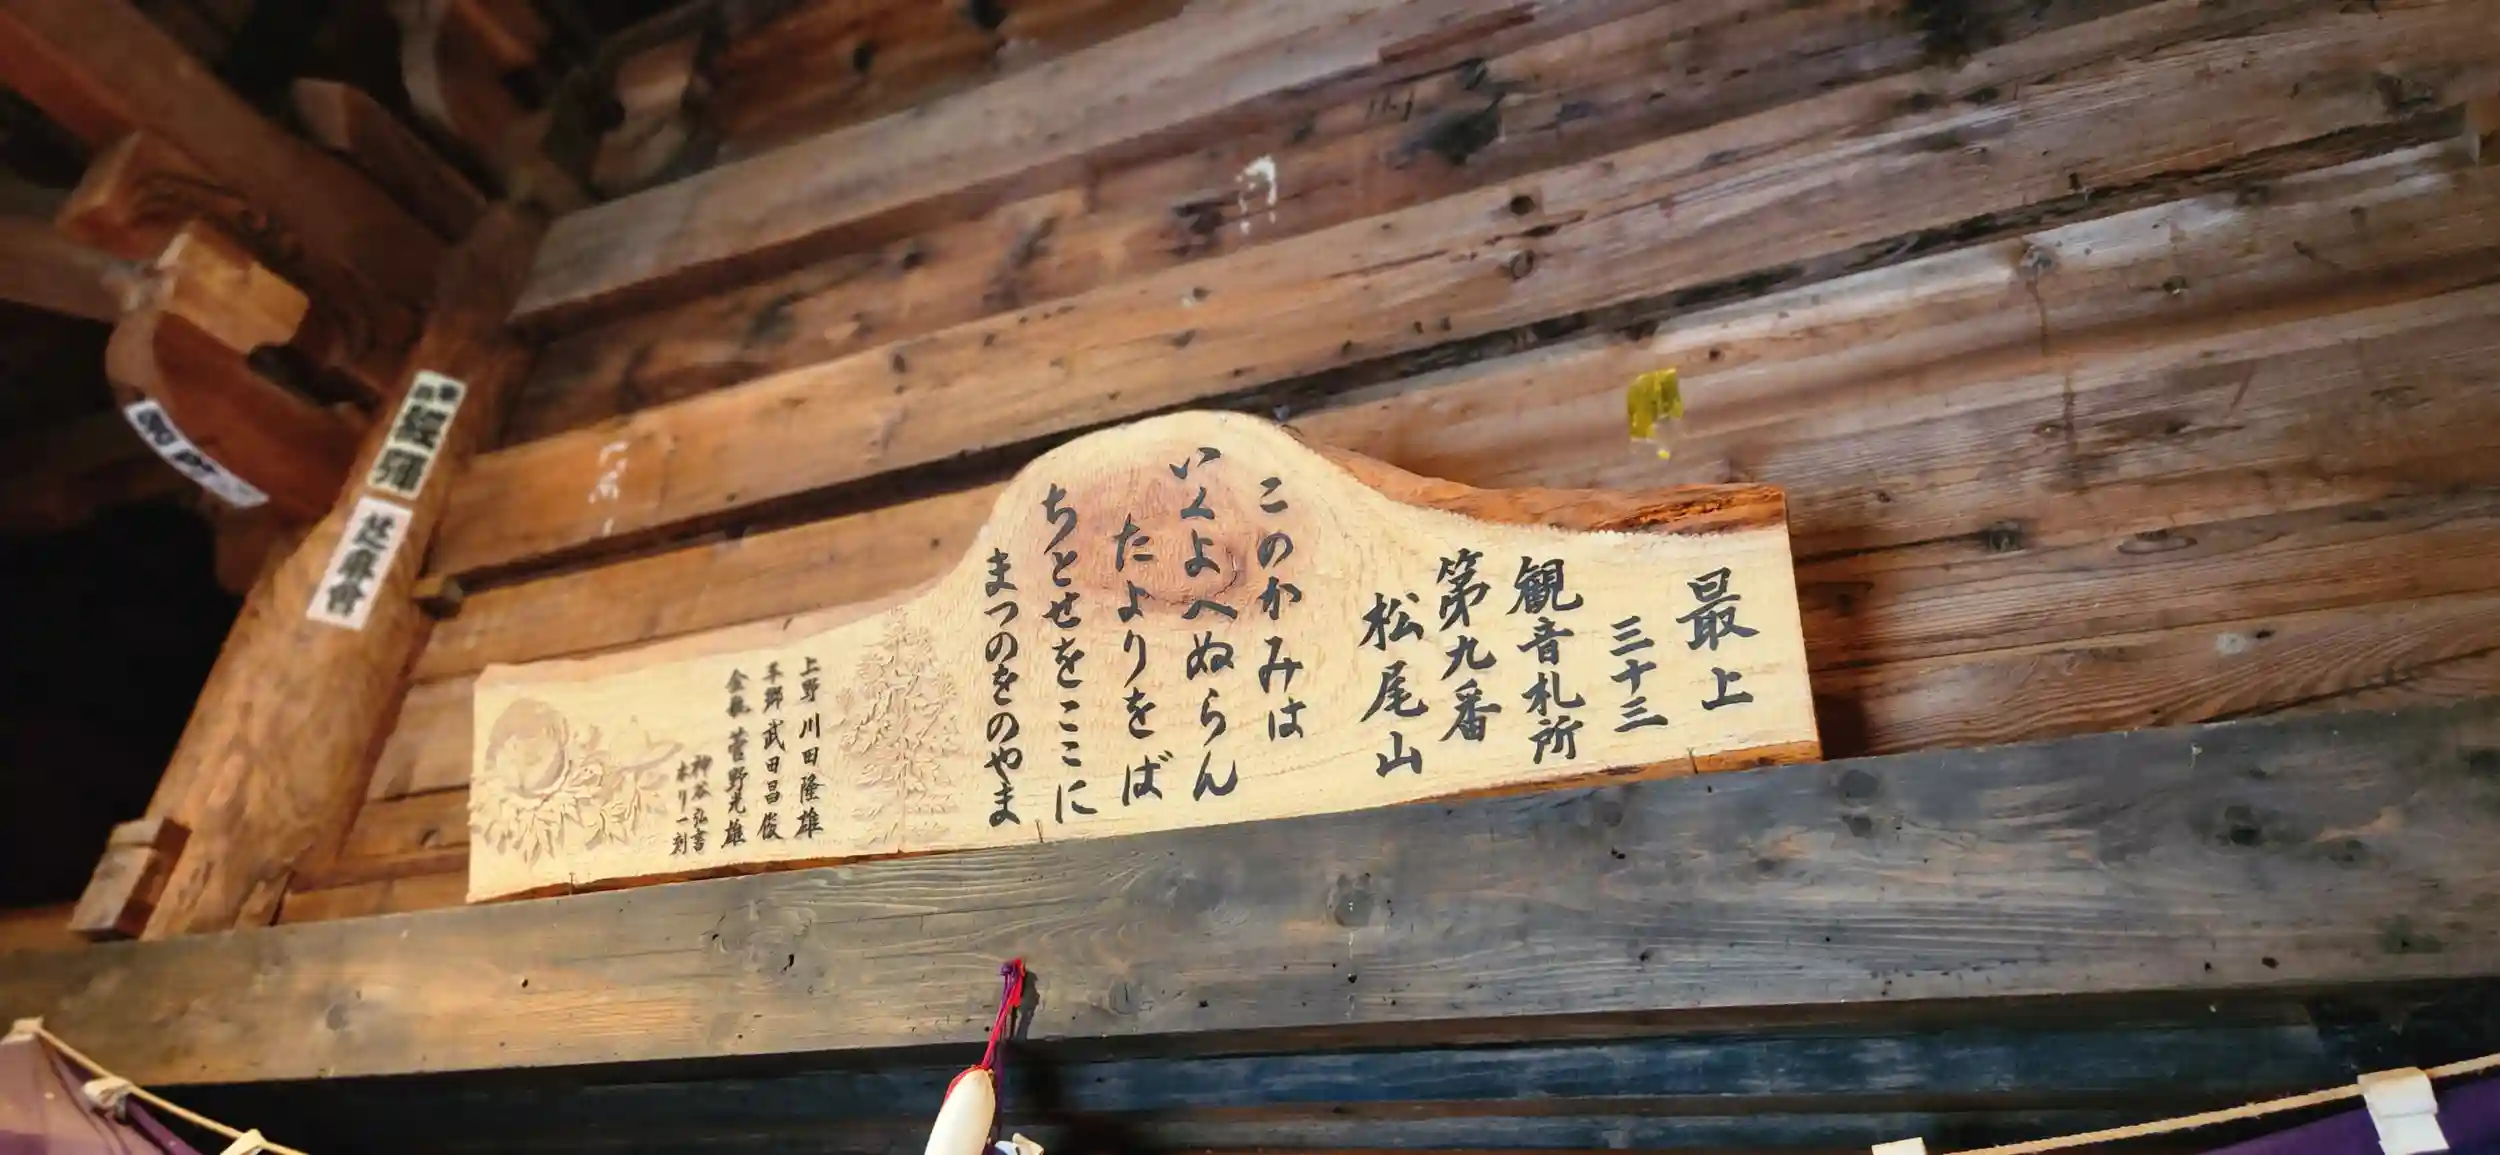 最上
三十三
観音札所
第九番
松尾山
このかみは
いくよへぬらん
たよりをば
ちとせをここに
まつのをのやま
上野 川田隆雄
半郷 武田昌俊
金瓶 菅野光雄
神谷弘書
ホリ一刻
芝麻會